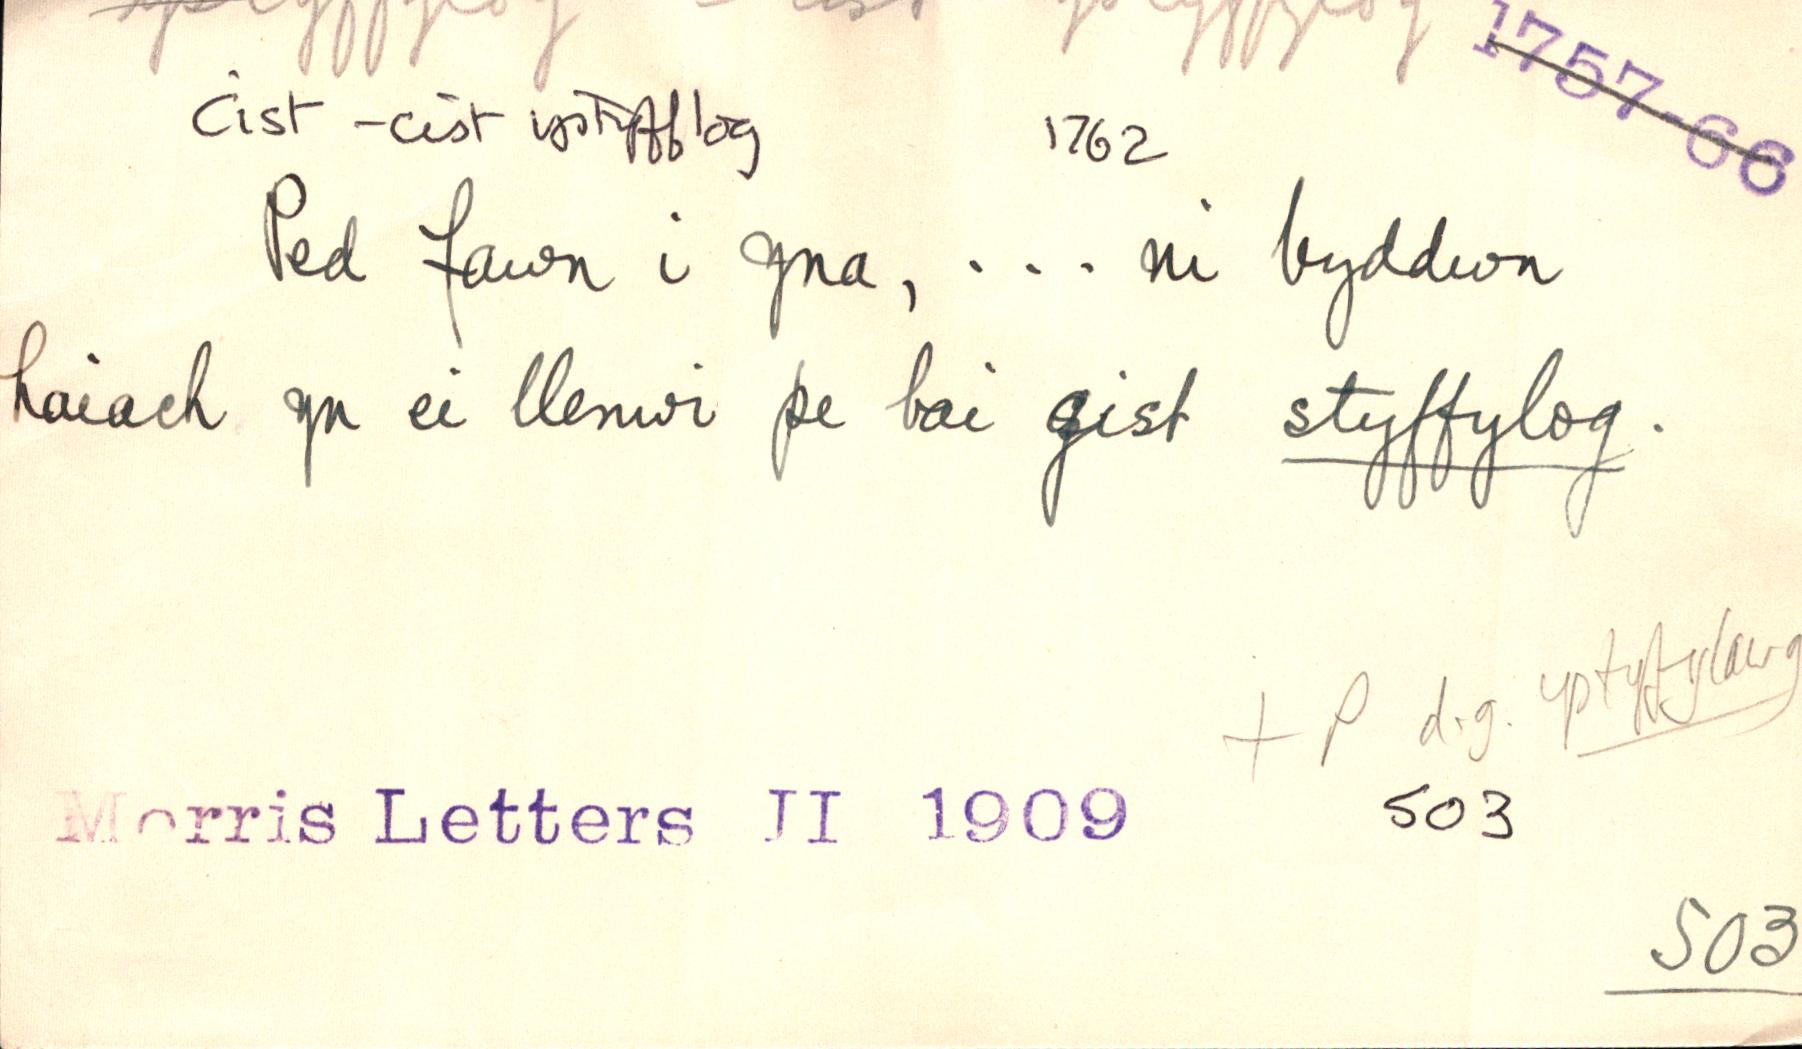 1757-66
cist - cist ystyfflog 1762
Ped fawn i yna, . . . ni byddwn
haiach yn ei llenwi pe bai gist styffylog.
+ P d.g. ystyffylawg
Morris Letters II 1909 503
503